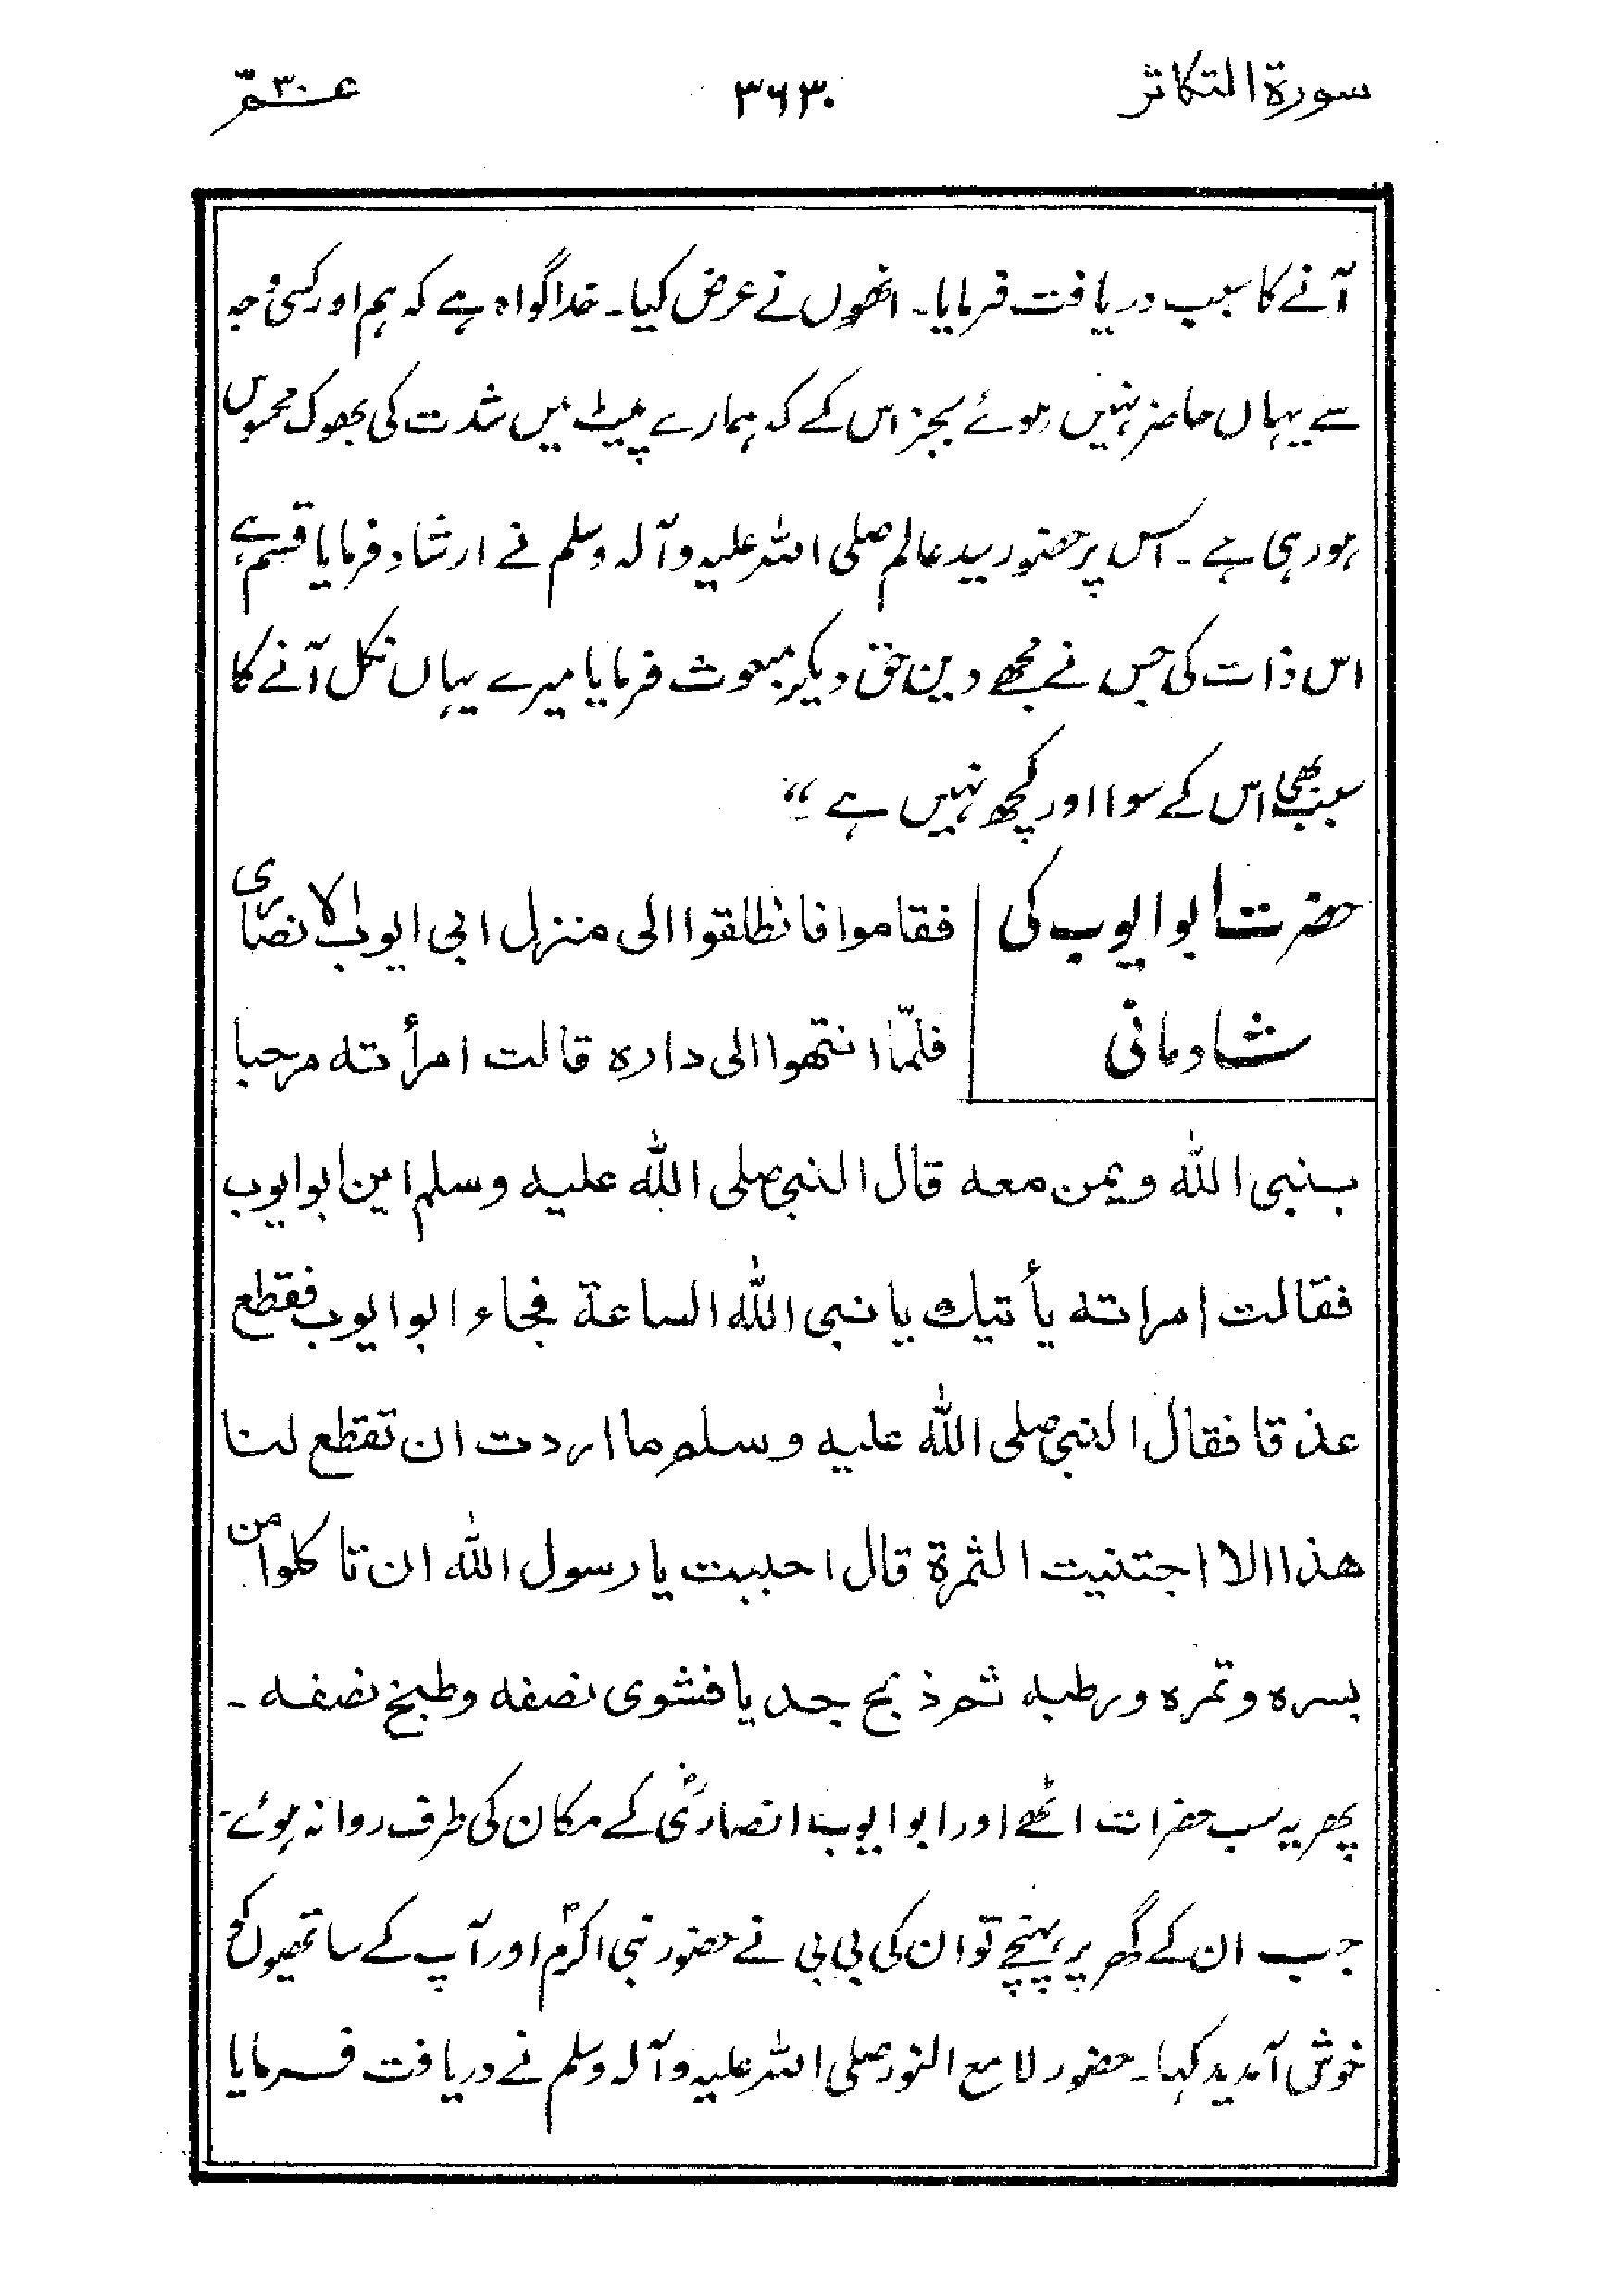 سورۃ التکاثر ۳۶۳۰ عمّ ۳۰
آنے کا سبب دریافت فرمایا۔ انھوں نے عرض کیا۔ خدا گواہ ہے کہ ہم اور کسی وجہ
سے یہاں حاضر نہیں ہوئے بجز اس کے کہ ہمارے پیٹ میں شدت کی بھوک محسوس
ہو رہی ہے۔ اس پر حضور سید عالم صلی اللہ علیہ وآلہ وسلم نے ارشاد فرمایا قسم ہے
اس ذات کی جس نے مجھے دین حق دیکر مبعوث فرمایا میرے یہاں نکل آنے کا
سبب بھی اس کے سوا اور کچھ نہیں ہے۔“
حضرت ابو ایوب کی
شادمانی
فقاموا فانطلقوا الی منزل ابی ایوب الانصاری
فلمّا انتھوا الی دارہ قالت امرأتہ مرحبا
بنبی اللہ و بمن معہ قال النبی صلی اللہ علیہ وسلم این ابو ایوب
فقالت امراتہ یأتیک یا نبی اللہ الساعۃ فجاء ابو ایوب فقطع
عذقا فقال النبی صلی اللہ علیہ وسلم ما اردت ان تقطع لنا
ھذا الا اجتنیت الثمرۃ قال احببت یا رسول اللہ ان تاکلوا من
بسرہ وتمرہ ورطبہ ثم ذبح جدیا فشوی نصفہ وطبخ نصفہ۔
پھر یہ سب حضرات اٹھے اور ابو ایوب انصاریؓ کے مکان کی طرف روانہ ہوئے۔
جب ان کے گھر پر پہنچے تو ان کی بی بی نے حضور نبی اکرمؐ اور آپ کے ساتھیوں کو
خوش آمدید کہا۔ حضور لامع النور صلی اللہ علیہ وآلہ وسلم نے دریافت فرمایا